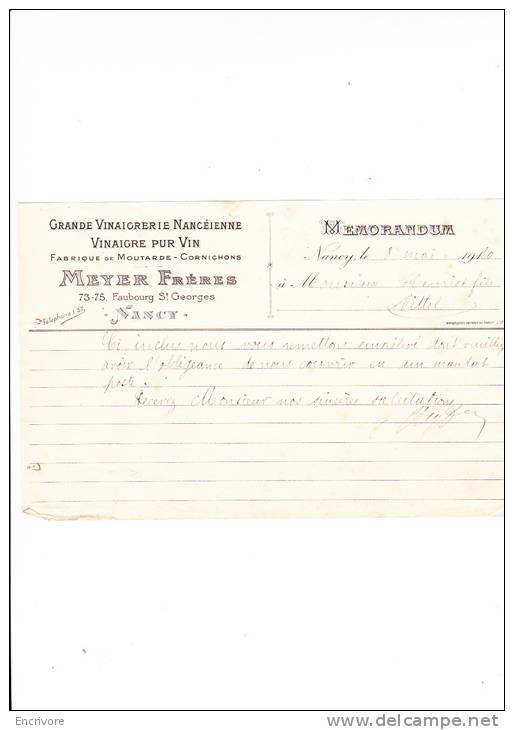 Grande Vinaigrerie Nancéienne
Vinaigre pur Vin
Fabrique de Moutarde - Cornichons
Meyer Frères
73-75, Faubourg St Georges
Nancy
Téléphone 1.23
Memorandum
Nancy, le 8 mai 1910
à Monsieur fils
Vittel
Ci inclus nous vous remettons dont veuillez
avoir l'obligeance de nous couvrir en un mandat
poste.
Recevez Monsieur nos sincères salutations
Encrivore
www.delcampe.net